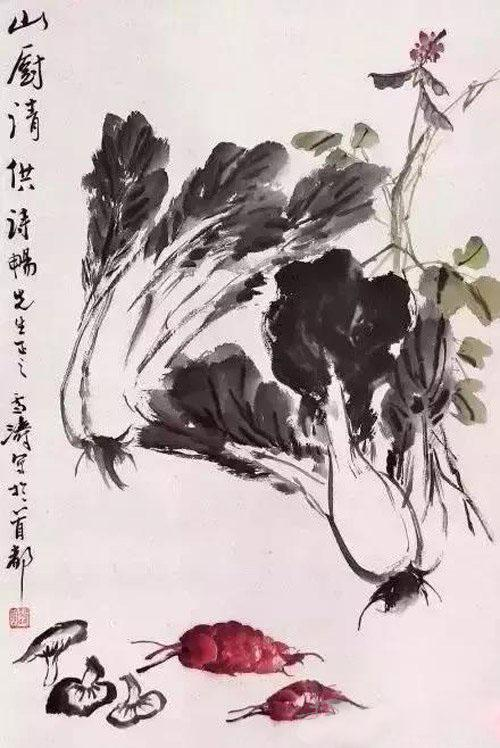 山厨清供诗畅先生正之雪涛写于首都